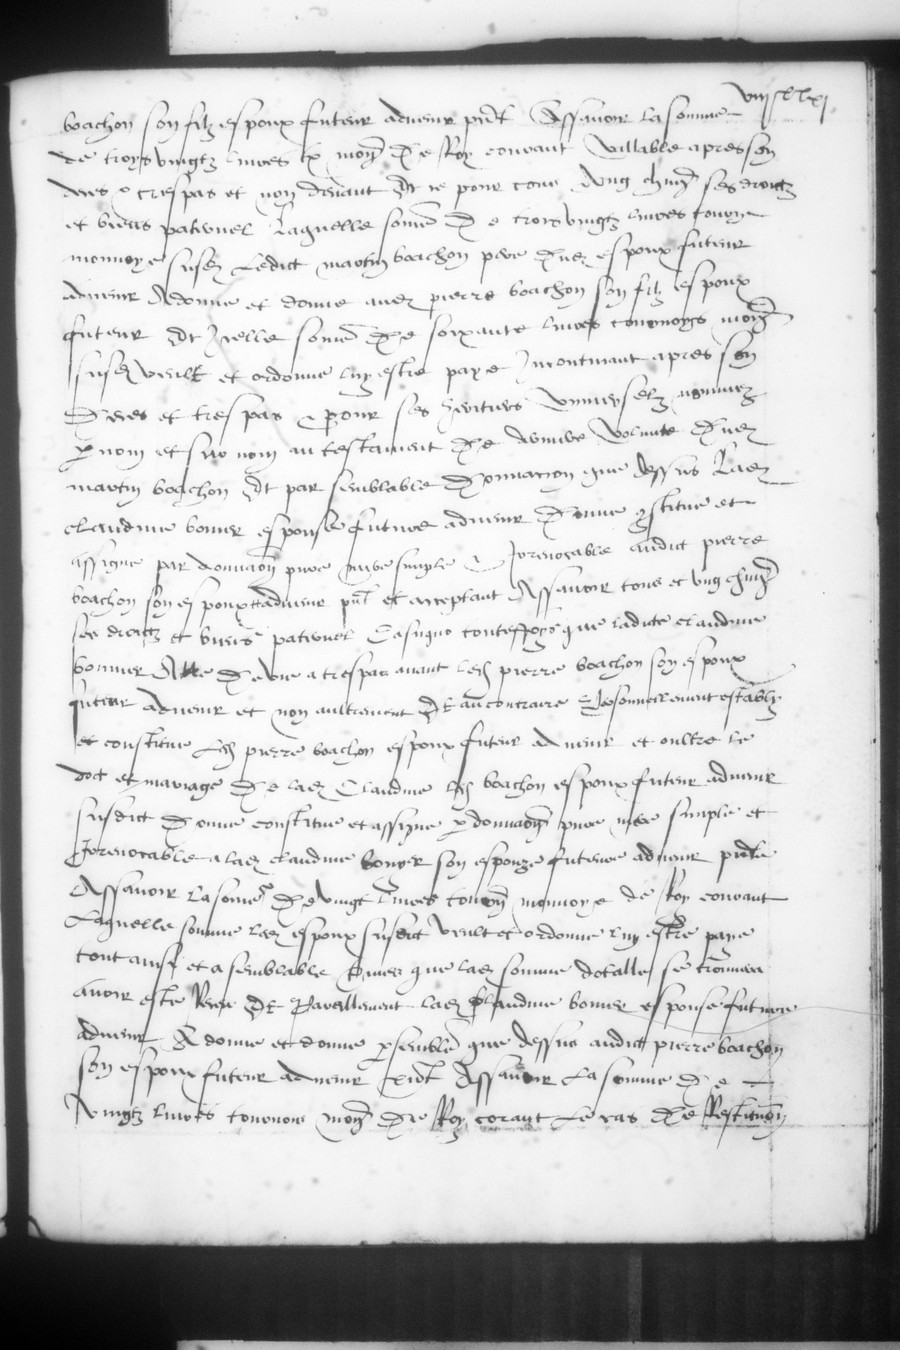 viiicxxi
boachon son filz espoux futeur advenir pnt Assavoir la somme
de troys vingtz livres tz mon de Roy courant vallable apres son
deces & trespas et non devant Et ce pour tous & ung chung ses droictz
et biens paternel Laquelle some de troys vingtz livres tourn
monnoye susd Ledict martin boachon pere dud espoux futeur
advenir A donne et donne aud pierre boachon son filz espoux
futeur Et Icelle some de soixante livres tournoys mon
susd veult et ordonne luy estre paye Incontinant apres son
deces et trespas & pour ses heritiers universelz nommez
p nom et sur nom au testament de derniere volunte dud
martin boachon Et par semblable donnacion que dessus Lad
claudine bonier espouse future advenir donne constitue et
assigne par donnaon pure mere simple & Irrevocable audict pierre
boachon son espoux advenir pnt et acceptant Assavoir tous et ung chung
ses droictz et biens paternel Casuquo touteffoys que ladite claudine
bonier Alle de vie a trespas avant led pierre boachon son espoux
futeur advenir et non aultrement Et au contraire personnellement estably
et constitue Led pierre boachon espoux futeur advenir et oultre le
doct et mariage de lad Claudine led boachon espoux futeur advenir
susdict donne constitue et assigne p donnaon pure mere simple et
Irrevocable a lad claudine bonyer son espouze future advenir pnte
Assavoir la some de vingt livres tourn monnoye de Roy courant
Laquelle somme led espoux susdict veult et ordonne luy estre paye
tout ainsi et a semblable que lad somme dotalle se trouvera
avoir este Receu Et Pareillement lad Claudine bonier espouse future
advenir A donne et donne p semble que dessus audict pierre boachon
son espoux futeur advenir pnt Assavoir La somme de
vingtz livres tournois mon de Roy corant Le cas de Restituon